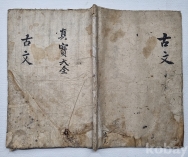 古文
眞寶大全
古文
kobay